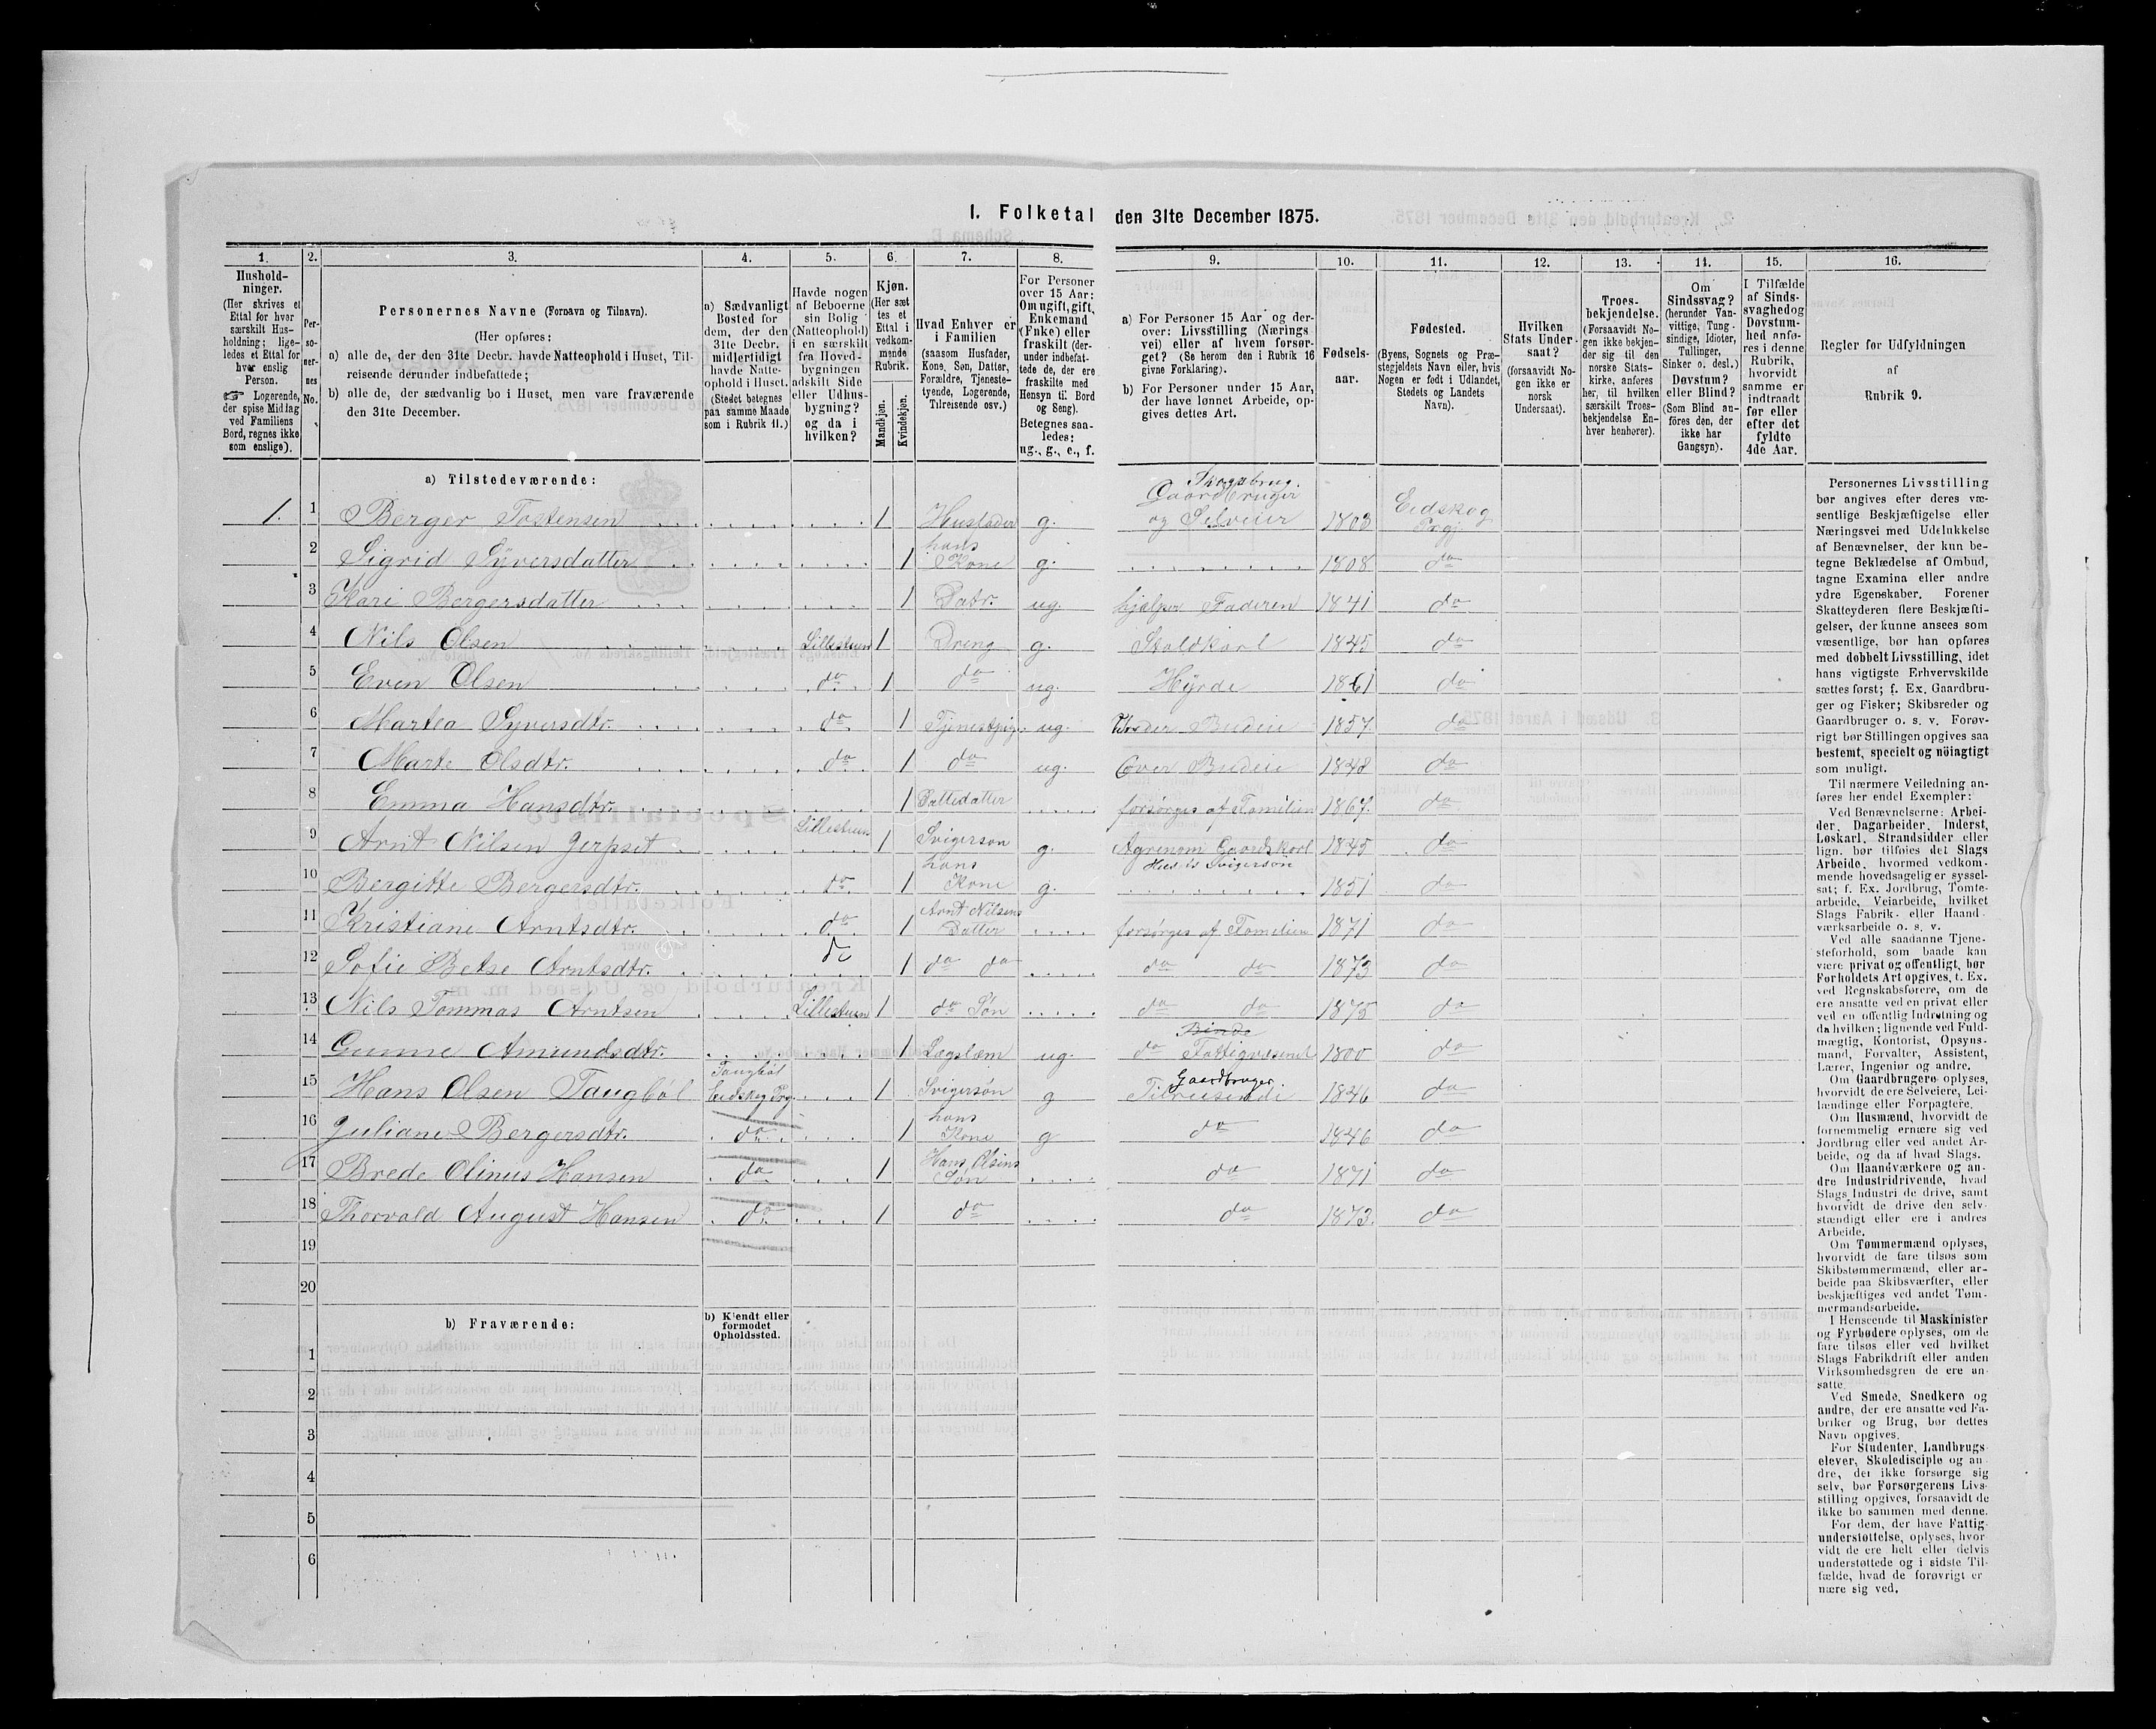 I. Folketal den 31te December 1875.
1. 2. 3. 4. 5. 6. 7. 8. 9. 10. 11. 12. 13. 14. 15. 16.
Hushold-
ninger.
(Her skrives et
Ettal for hver
særskilt Hus-
holdning; lige-
ledes et Ettal for
hver enslig
Person.
☞ Logerende,
der spise Middag
ved Familiens
Bord, regnes ikke
som enslige).
Per-
so-
ner-
nes
No.
Personernes Navne (Fornavn og Tilnavn).
(Her opføres:
a) alle de, der den 31te Decbr. havde Natteophold i Huset, Til-
reisende derunder indbefattede;
b) alle de, der sædvanlig bo i Huset, men vare fraværende
den 31te December.
a) Sædvanligt
Bosted for
dem, der den
31te Decbr.
midlertidigt
havde Natte-
ophold i Huset.
(Stedet betegnes
paa samme Maade
som i Rubrik 11.)
Havde nogen
af Beboerne
sin Bolig
(Natteophold)
i en særskilt
fra Hoved-
bygningen
adskilt Side
eller Udhus-
bygning?
og da i
hvilken?
Kjøn.
(Her sæt
tes et
Ettal i
vedkom-
mende
Rubrik.
Mandkjøn.
Kvindekjøn.
Hvad Enhver er
i Familien
(saasom Husfader,
Kone, Søn, Datter,
Forældre, Tjeneste-
tyende, Logerende,
Tilreisende osv.)
For Personer
over 15 Aar:
Om ugift, gift,
Enkemand
(Enke) eller
fraskilt (der-
under indbefat-
tede de, der ere
fraskilte med
Hensyn til Bord
og Seng).
Betegnes saa-
ledes:
ug., g., e., f.
a) For Personer 15 Aar og der-
over: Livsstilling (Nærings
vei) eller af hvem forsør-
get? (Se herom den i Rubrik 16
givne Forklaring).
b) For Personer under 15 Aar,
der have lønnet Arbeide, op-
gives dettes Art.
Fødsels-
aar.
Fødested.
(Byens, Sognets og Præ-
stegjeldets Navn eller, hvis
Nogen er født i Udlandet,
Stedets og Landets
Navn).
Hvilken
Stats Under-
saat?
(forsaavidt No-
gen ikke er
norsk
Undersaat).
Troes-
bekjendelse.
(Forsaavidt No-
gen ikke bekjen-
der sig til den
norske Stats-
kirke, anføres
her, til hvilken
særskilt Troes-
bekjendelse En-
hver henhører).
Om
Sindssvag?
(herunder Van-
vittige, Tung-
sindige, Idioter,
Tullinger,
Sinker o. desl.)
Døvstum?
eller Blind?
(Som Blind an-
føres den, der
ikke har
Gangsyn).
I Tilfælde
af Sinds-
svaghed og
Døvstum-
hed anfø-
res i denne
Rubrik,
hvorvidt
samme er
indtraadt
før eller
efter det
fyldte
4de Aar.
Regler for Udfyldningen
af
Rubrik 9.
a) Tilstedeværende:
Skogsbrug.
1. 1 Berger Tostensen 1 Husfader g. Gaardbruger og Selveier 1803 Eidskog Prgj
2 Sigrid Syversdatter 1 hans Kone g. 1808 do
3 Kari Bergersdatter 1 Datr. ug. hjælper Faderen 1841 do
4 Nils Olsen Lillestuen 1 Dreng g. Staldkarl 1845 do
5 Even Olsen do 1 do ug. Hyrde 1861 do
6 Martea Syversdtr. do 1 Tjenestpig. ug. Under Budeie 1857 do
7 Marte Olsdtr. do 1 do ug. Over Budeie 1848 do
8 Emma Hansdtr. 1 Dattedatter forsørges af Familien 1867. do
9 Arnt Nilsen Gerpset Lillestuen 1 Svigerson g. Agrenom Gaardskarl 1845 do
Svigersøn
10 Bergitte Bergersdtr. do 1 hans Kone g. 1851 do
11 Kristiane Arntsdtr. do 1 Arnt Nilsens Datter forsørges af Familien 1871 do
12 Sofie Betse Arntsdtr. do 1 do do do do 1873 do
13 Nils Tommas Arntsen Lillestuen 1 do Søn do do 1875 do
14 Gunne Amundsdtr. 1 Lægslem ug. do Fattigvæsenet 1800 do
15 Hans Olsen Taugbøl Taugbøl Eidskog Prg 1 Svigersøn g Gaardbruger. Tilreisende 1846 do
16 Juliane Bergersdtr. do 1 hans Kone g do 1846 do
17 Brede Olinus Hansen do 1 Hans Olsens Søn do 1871 do
18 Thorvald August Hansen do 1 do do 1873. do
19
20
b) Fraværende:
b) Kjendt eller
formodet
Opholdssted.
1
2
3
4
5
6
Personernes Livsstilling
bør angives efter deres væ-
sentlige Beskjæftigelse eller
Næringsvei med Udelukkelse
af Benævnelser, der kun be-
tegne Beklædelse af Ombud,
tagne Examina eller andre
ydre Egenskaber. Forener
Skatteyderen flere Beskjæfti-
gelser, der kunne ansees som
væsentlige, bør han opføres
med dobbelt Livsstilling, idet
hans vigtigste Erhvervskilde
sættes først; f. Ex. Gaardbru-
ger og Fisker; Skibsreder og
Gaardbruger o. s. v. Forøv-
rigt bør Stillingen opgives saa
bestemt, specielt og nöiagtigt
som muligt.
Til nærmere Veiledning an-
føres her endel Exempler:
Ved Benævnelserne: Arbei-
der, Dagarbeider, Inderst,
Løskarl, Strandsidder eller
lign. bør tilføies det Slags
Arbeide, hvormed vedkom-
mende hovedsagelig er syssel-
sat; f. Ex. Jordbrug, Tomte-
arbeide, Veiarbeide, hvilket
Slags Fabrik- eller Haand-
værksarbeide o. s. v.
Ved alle saadanne Tjene-
steforhold, som baade kan
være privat og offentligt, bør
Forholdets Art opgives, f. Ex.
ved Regnskabsførere, om de
ere ansatte ved en privat eller
ved en offentlig Indretning og
da hvilken; lignende ved Fuld-
mægtig, Kontorist, Opsyns-
mand, Forvalter, Assistent,
Lærer, Ingeniør og andre.
Om Gaardbrugere oplyses,
hvorvidt de ere Selveiere, Lei-
lændinge eller Forpagtere.
Om Husmænd, hvorvidt de
fornemmelig ernære sig ved
Jordbrug eller ved andet Ar-
beide, og da af hvad Slags.
Om Haandværkere og an-
dre Industridrivende, hvad
Slags Industri de drive, samt
hvorvidt de drive den selv-
stændigt eller ere i andres
Arbeide.
Om Tømmermænd oplyses,
hvorvidt de fare tilsøs som
Skibstømmermænd, eller ar-
beide paa Skibsværfter, eller
beskjæftiges ved andet Tøm-
mermandsarbeide.
I Henseende til Maskinister
og Fyrbødere oplyses, om de
fare tilsøs eller ved hvilket
Slags Fabrikdrift eller anden
Virksomhedsgren de ere an-
satte.
Ved Smede, Snedkere og
andre, der ere ansatte ved Fa-
briker og Brug, bør dettes
Navn opgives.
For Studenter, Landbrugs-
elever, Skoledisciple og an-
dre, der ikke forsørge sig
selv, bør Forsørgerens Livs-
stilling opgives, forsaavidt de
ikke bo sammen med denne.
For dem, der have Fattig-
understøttelse, oplyses, hvor-
vidt de ere helt eller delvis
understøttede og i sidste Til-
fælde, hvad de forøvrigt er-
nære sig ved.